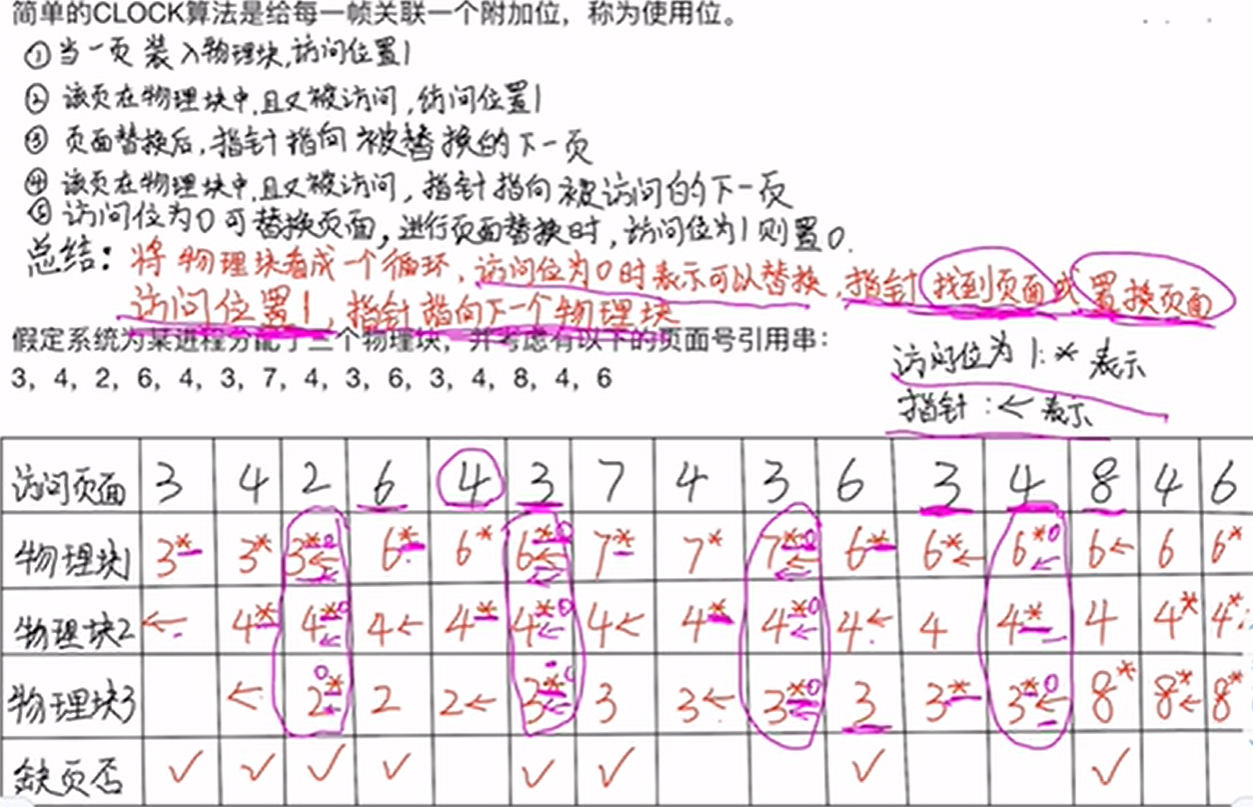 简单的CLOCK算法是给每一帧关联一个附加位，称为使用位。
①当一页装入物理块,访问位置1
②该页在物理块中,且又被访问,访问位置1
③页面替换后,指针指向被替换的下一页
④该页在物理块中,且又被访问,指针指向被访问的下一页
⑤访问位为0可替换页面,进行页面替换时,访问位为1则置0.
总结: 将物理块看成一个循环,访问位为0时表示可以替换,指针找到页面或置换页面
访问位置1,指针指向下一个物理块
假定系统为某进程分配了三个物理块，并考虑有以下的页面号引用串：
3，4，2，6，4，3，7，4，3，6，3，4，8，4，6
访问位为1:* 表示
指针:← 表示
访问页面 3 4 2 6 4 3 7 4 3 6 3 4 8 4 6
物理块1 3* 3* 3*0← 6* 6* 6*0← 7* 7* 7*0← 6* 6*← 6*0← 6← 6 6*
物理块2 ← 4* 4*0← 4← 4* 4*0← 4← 4* 4*0← 4← 4 4* 4 4* 4*
物理块3 ← 2*0← 2 2← 3*0← 3 3← 3*0← 3 3* 3*0← 8* 8*← 8*
缺页否 ✓ ✓ ✓ ✓ ✓ ✓ ✓ ✓